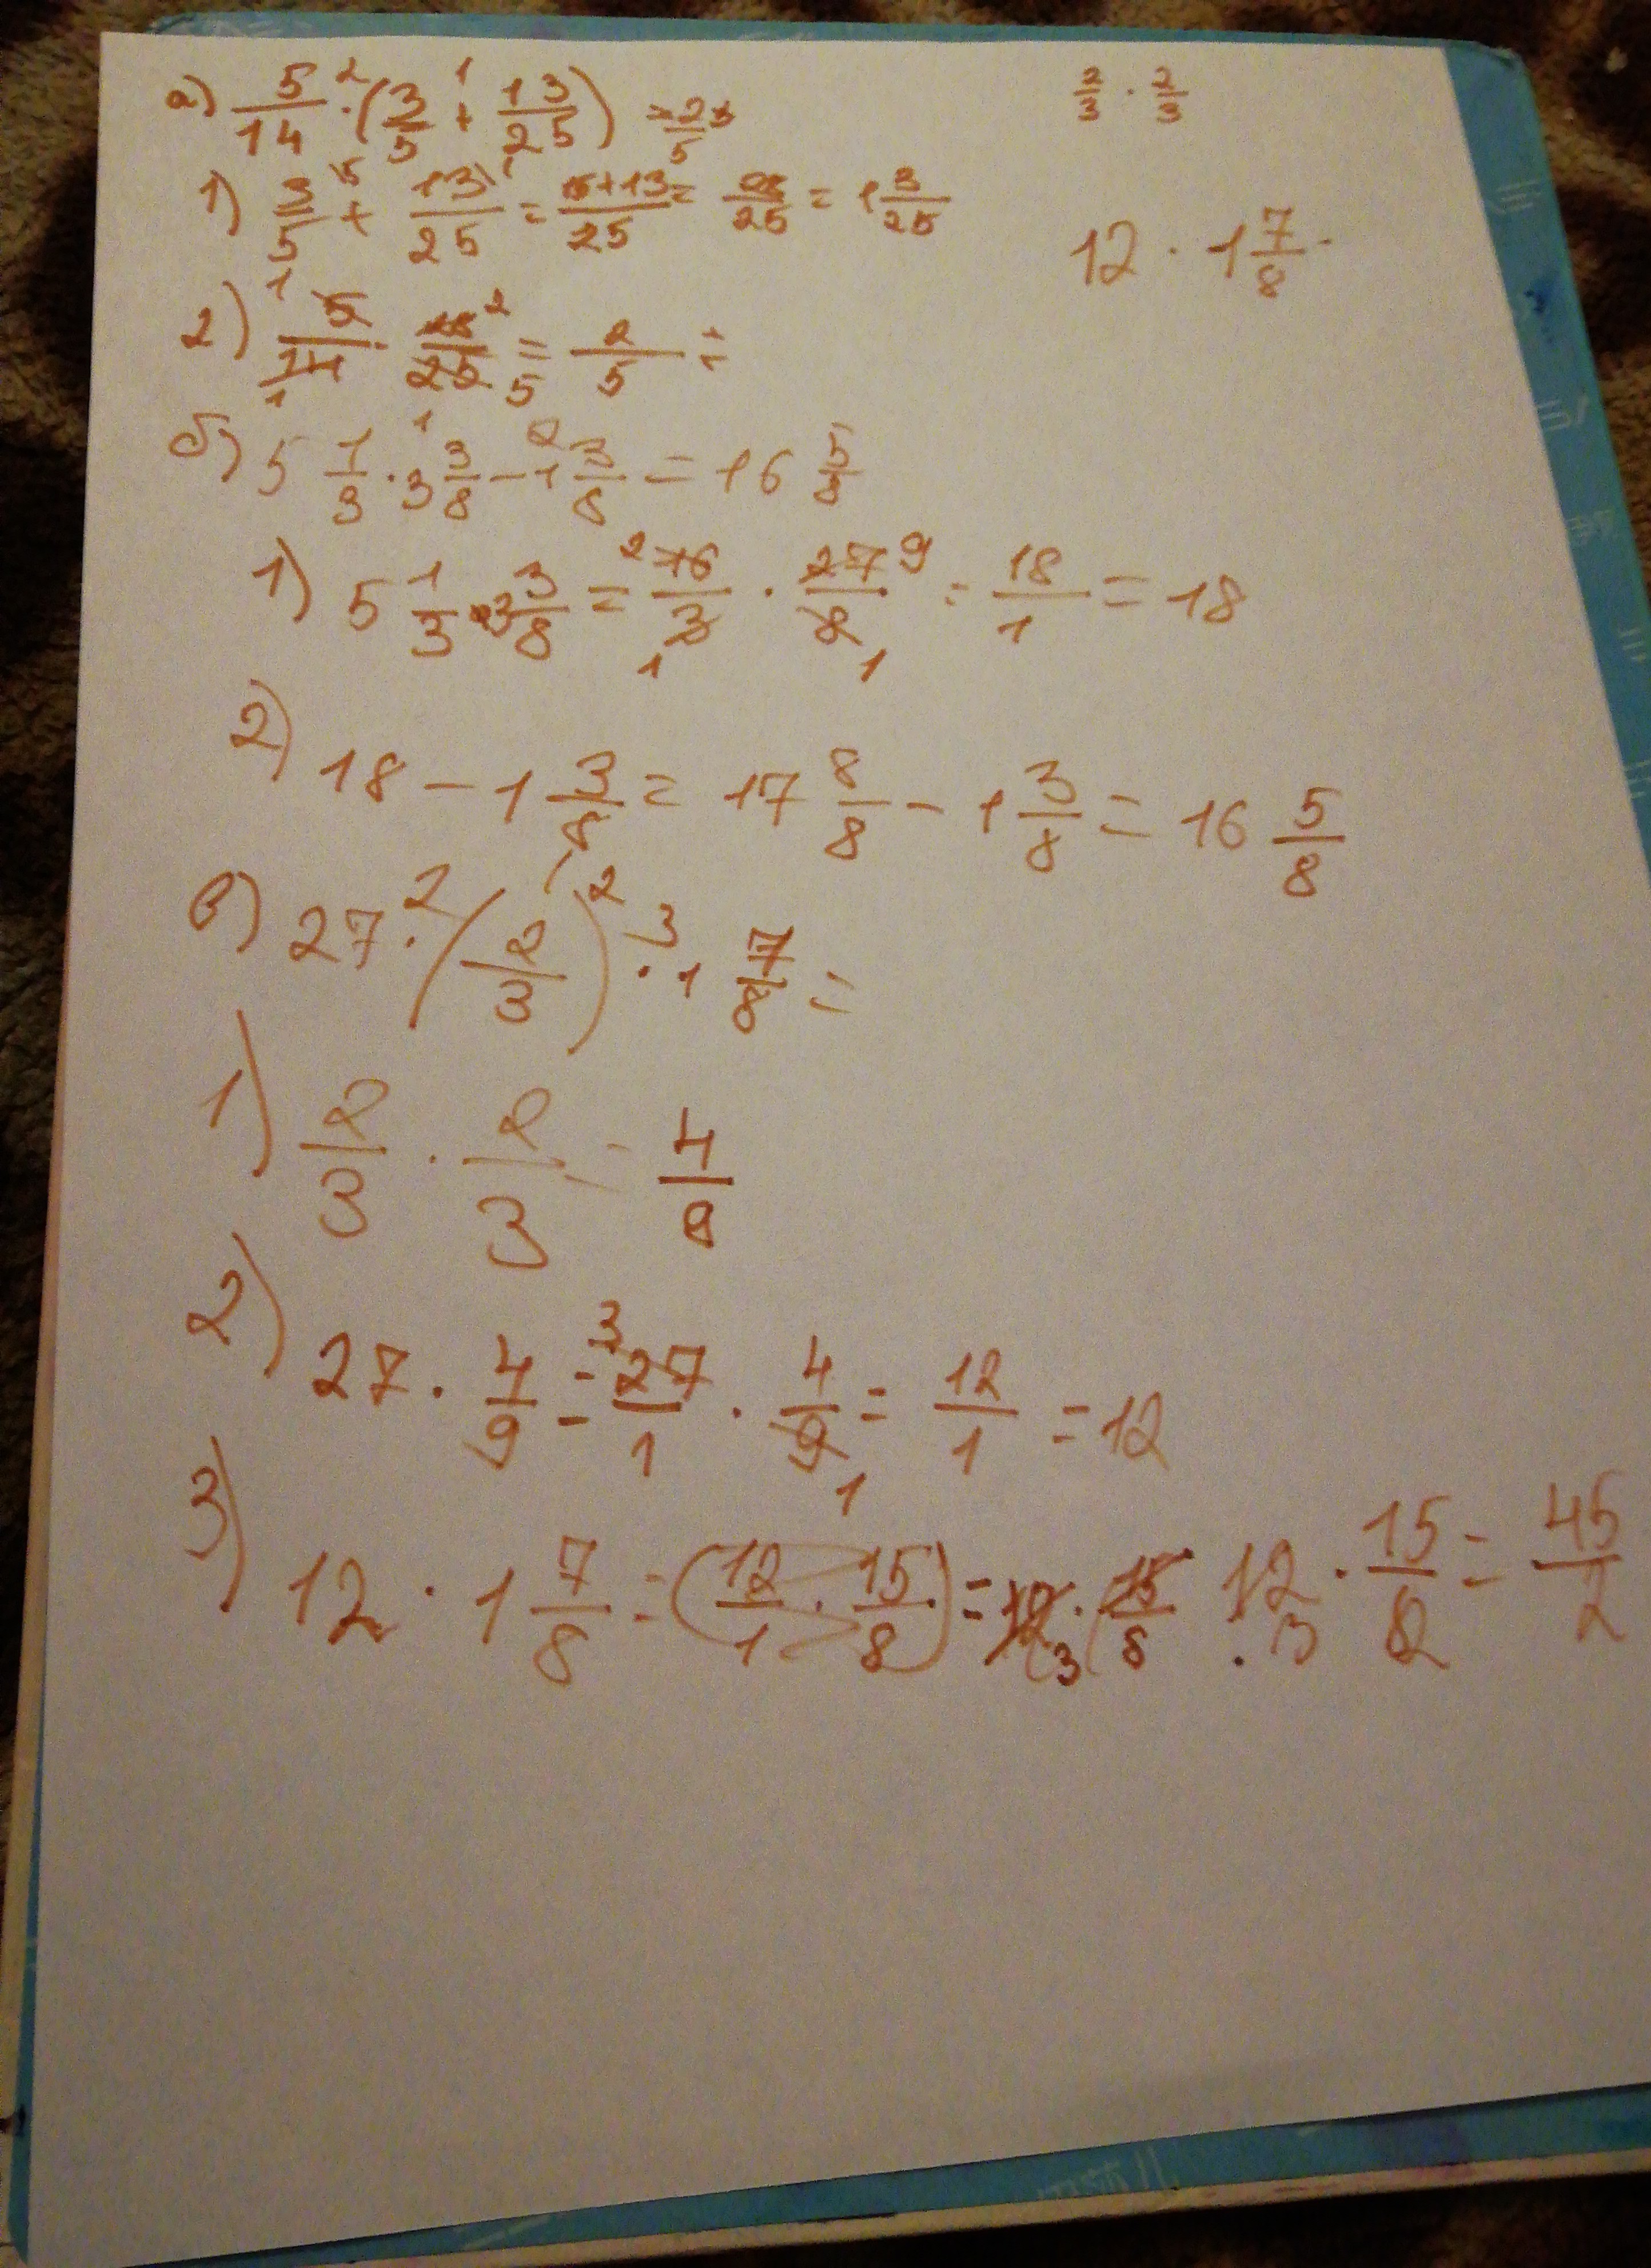 а) 5/14 ·² (3/5 +¹ 13/25) = 2/5
2/3 · 2/3
1) 3/5 + 13/25 = 15+13/25 = 28/25 = 1 3/25
12 · 1 7/8 ·
2) 5/14 · 28/25 = 2/5 =
б) 5 1/3 ·¹ 3 3/8 −² 1 3/8 = 16 5/8
1) 5 1/3 · 3 3/8 = 16/3 · 27/8 = 18/1 = 18
2) 18 − 1 3/8 = 17 8/8 − 1 3/8 = 16 5/8
в) 27 ·² (2/3)² ·³ 1 7/8 =
1) 2/3 · 2/3 = 4/9
2) 27 · 4/9 = 27/1 · 4/9 = 12/1 = 12
3) 12 · 1 7/8 = (12/1 · 15/8) = 12 · 15/8 12 · 15/8 = 45/2